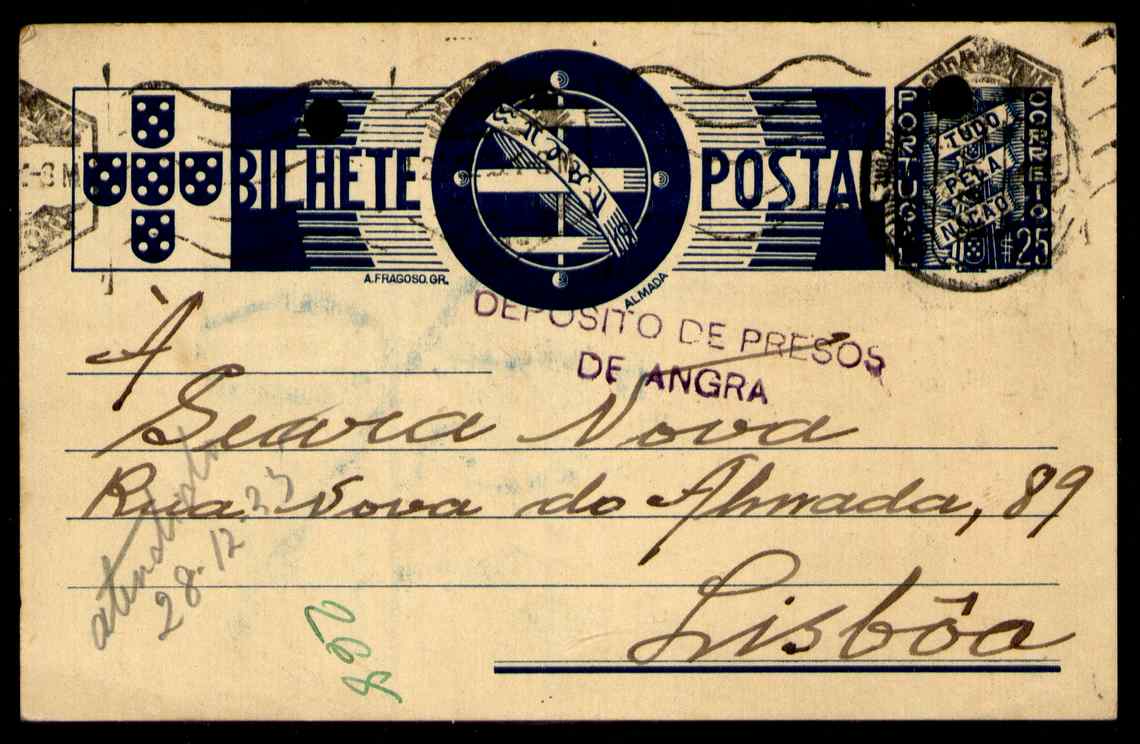 BILHETE POSTAL
PORTUGAL
CORREIO
TUDO
PELA
NAÇÃO
$25
A. FRAGOSO. GR.
ALMADA
DEPÓSITO DE PRESOS
DE ANGRA
À
Seara Nova
Rua Nova do Almada, 89
Lisbôa
28.12.